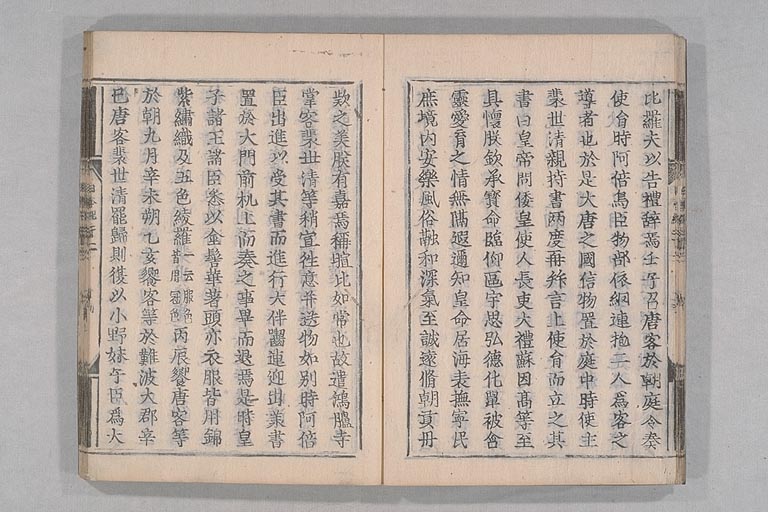 比羅夫以告禮辭焉壬子召唐客於朝庭令奏
使旨時阿倍鳥臣物部依網連抱二人爲客之
導者也於是大唐之國信物置於庭中時使主
裴世清親持書兩度再拜言上使旨而立之其
書曰皇帝問倭皇使人長吏大禮蘇因高等至
具懷朕欽承寶命臨仰區宇思弘德化覃被含
靈愛育之情無隔遐邇知皇命居海表撫寧民
庶境内安樂風俗融和深氣至誠遠脩朝貢丹
欵之美朕有嘉焉稍暄比如常也故遣鴻臚寺
掌客裴世清等稍宣徃意并送物如別時阿倍
臣出進以受其書而進行大伴囓連迎出羕書
置於大門前机上而奏之事畢而退焉是時皇
子諸王諸臣悉以金髻華著頭亦衣服皆用錦
紫繡織及五色綾羅一云服色皆用冠色丙辰饗唐客等
於朝九月辛未朔乙亥饗客等於難波大郡辛
巳唐客裴世清罷歸則復以小野妹子臣爲大